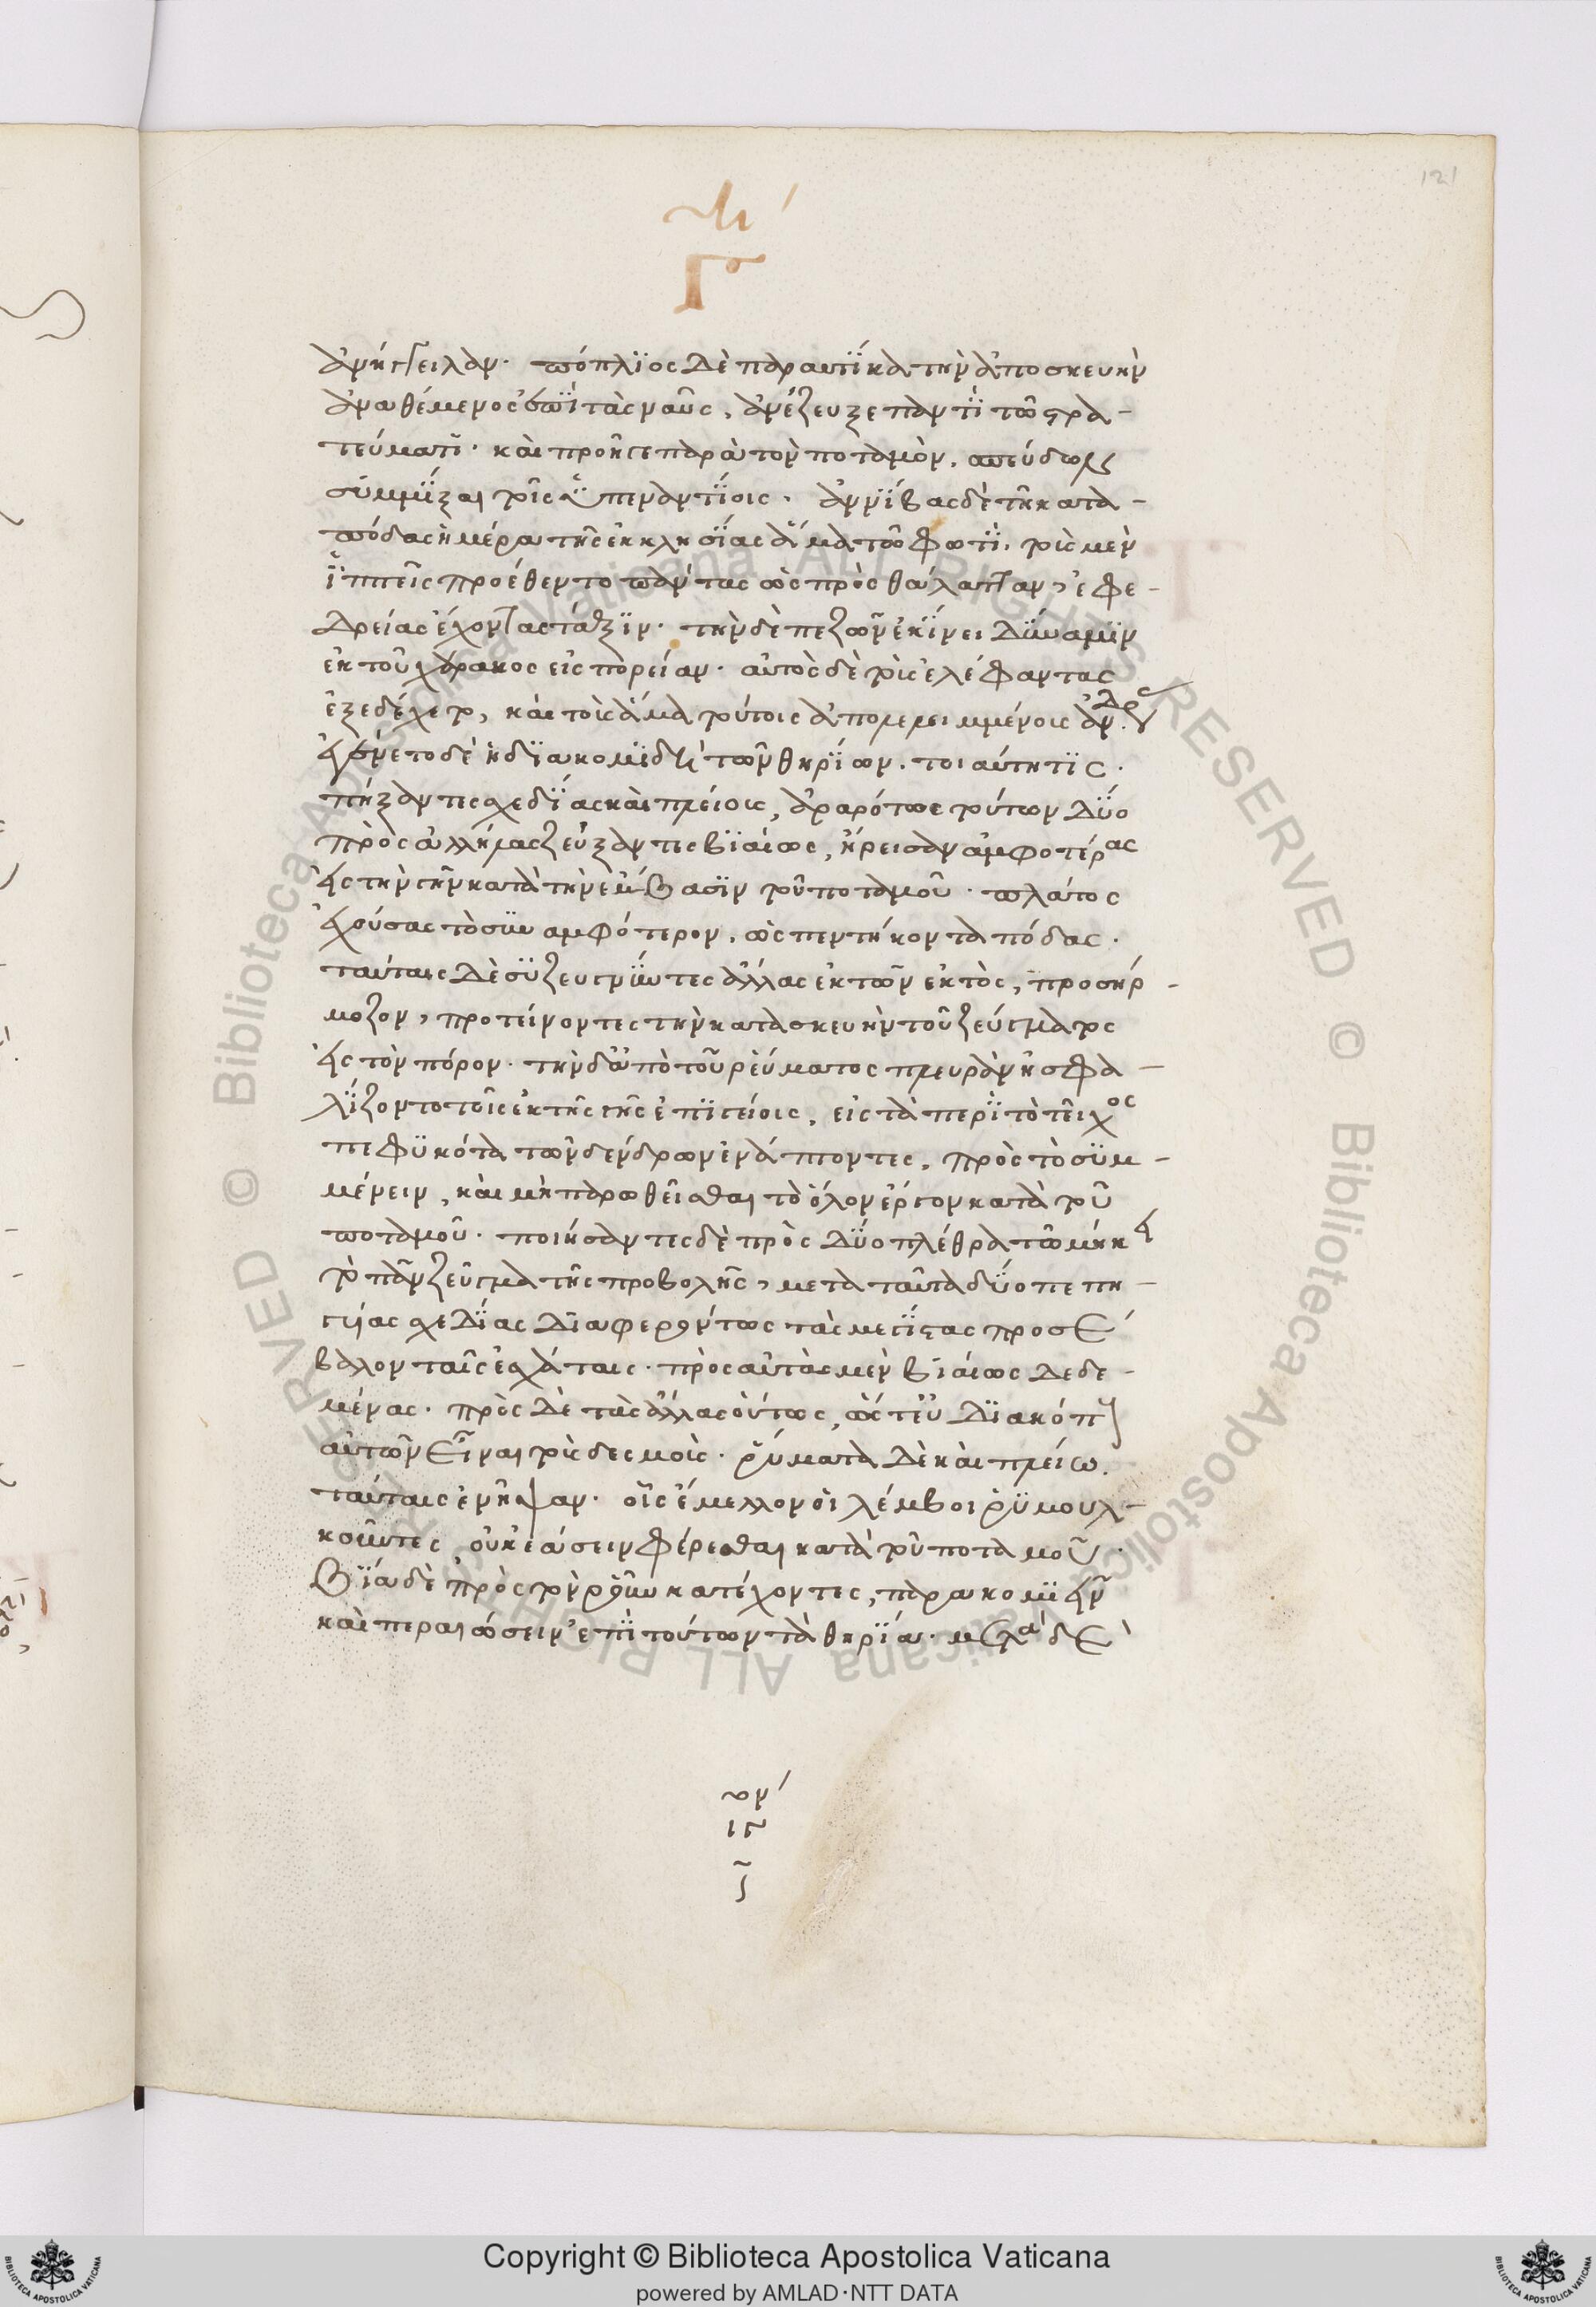 121
Γο
ἀνήγγειλαν. πόπλϊος δὲ παραυτΐκα τὴν ἀποσκευὴν
ἀναθέμενος ἐπῒ τὰς ναῦς, ἀνέζευξε παντῒ τῶ στρα-
τεύματϊ. καὶ προῆγε παρὰ τὸν ποταμὸν. σπεύδων
συμμΐξαι τοῖς ὑπεναντΐοις. ἀννΐβας δὲ τῆ κατα-
πόδας ἡμέρα τῆς ἐκκλησΐας ἅμα τῶ φωτῒ, τοὺς μὲν
ἱππεῖς προέθεντο πάντας ὡς πρὸς θάλατταν, ἐφε-
δρείας ἔχοντας τάξϊν. τὴν δὲ πεζῶν ἐκΐνει δύναμϊν
ἐκ τοῦ χάρακος εἰς πορείαν. αὐτὸς δὲ τοὺς ἐλέφαντας
ἐξεδέχετο, καὶ τοὺς ἅμα τούτοις ἀπολελειμμένους ἄνδρας
ἐγένετο δὲ ἡ δϊακομϊδὴ τῶν θηρΐων. τοιαύτη τϊς.
πήξαντες σχεδΐας καὶ πλείους, ἀραρότως τούτων δύο
πρὸς ἀλλήλας ζεύξαντες βϊαίως, ἤρεισαν ἀμφοτέρας
εἰς τὴν γῆν κατὰ τὴν ἔμβασϊν τοῦ ποταμοῦ. πλάτος
ἐχούσας τὸ συναμφότερον, ὡς πεντήκοντα πόδας.
ταύταις δὲ συζευγνύντες ἄλλας ἐκ τῶν ἐκτὸς, προσήρ-
μοζον, προτείνοντες τὴν κατασκευὴν τοῦ ζεύγματος
εἰς τὸν πόρον. τὴν δ' ἀπὸ τοῦ ῥεύματος πλευρὰν ἠσφα-
λΐζοντο τοῖς ἐκ τῆς γῆς ἐπϊγείοις, εἰς τὰ περῒ τὸ τεῖχος
πεφυκότα τῶν δένδρων ἐνάπτοντες, πρὸς τὸ συμ-
μένειν, καὶ μὴ παρωθεῖσθαι τὸ ὅλον ἔργον κατὰ τοῦ
ποταμοῦ. ποιήσαντες δὲ πρὸς δύο πλέθρα τῶ μήκει
τὸ πᾶν ζεῦγμα τῆς προβολῆς, μετὰ ταῦτα δύο πεπη-
γυίας σχεδΐας δϊαφερόντως τὰς μεγΐστας προσέ-
βαλον ταῖς ἐσχάταις. πρὸς αὐτὰς μὲν βϊαίως δεδε-
μένας. πρὸς δὲ τὰς ἄλλας οὕτως, ὥστ' εὐδϊακόπτους
αὐτῶν εἶναι τοὺς δεσμοὺς. ῥύματα δὲ καὶ πλείω
ταύταις ἐνῆψαν. οἷς ἔμελλον οἱ λέμβοι ῥυμουλ-
κοῦντες οὐκ ἐάσειν φέρεσθαι κατὰ τοῦ ποταμοῦ.
βΐα δὲ πρὸς τὸν ῥοῦν κατέχοντες, παρακομϊεῖν
καὶ περαιώσειν ἐπῒ τούτων τὰ θηρΐα. μετὰ δὲ